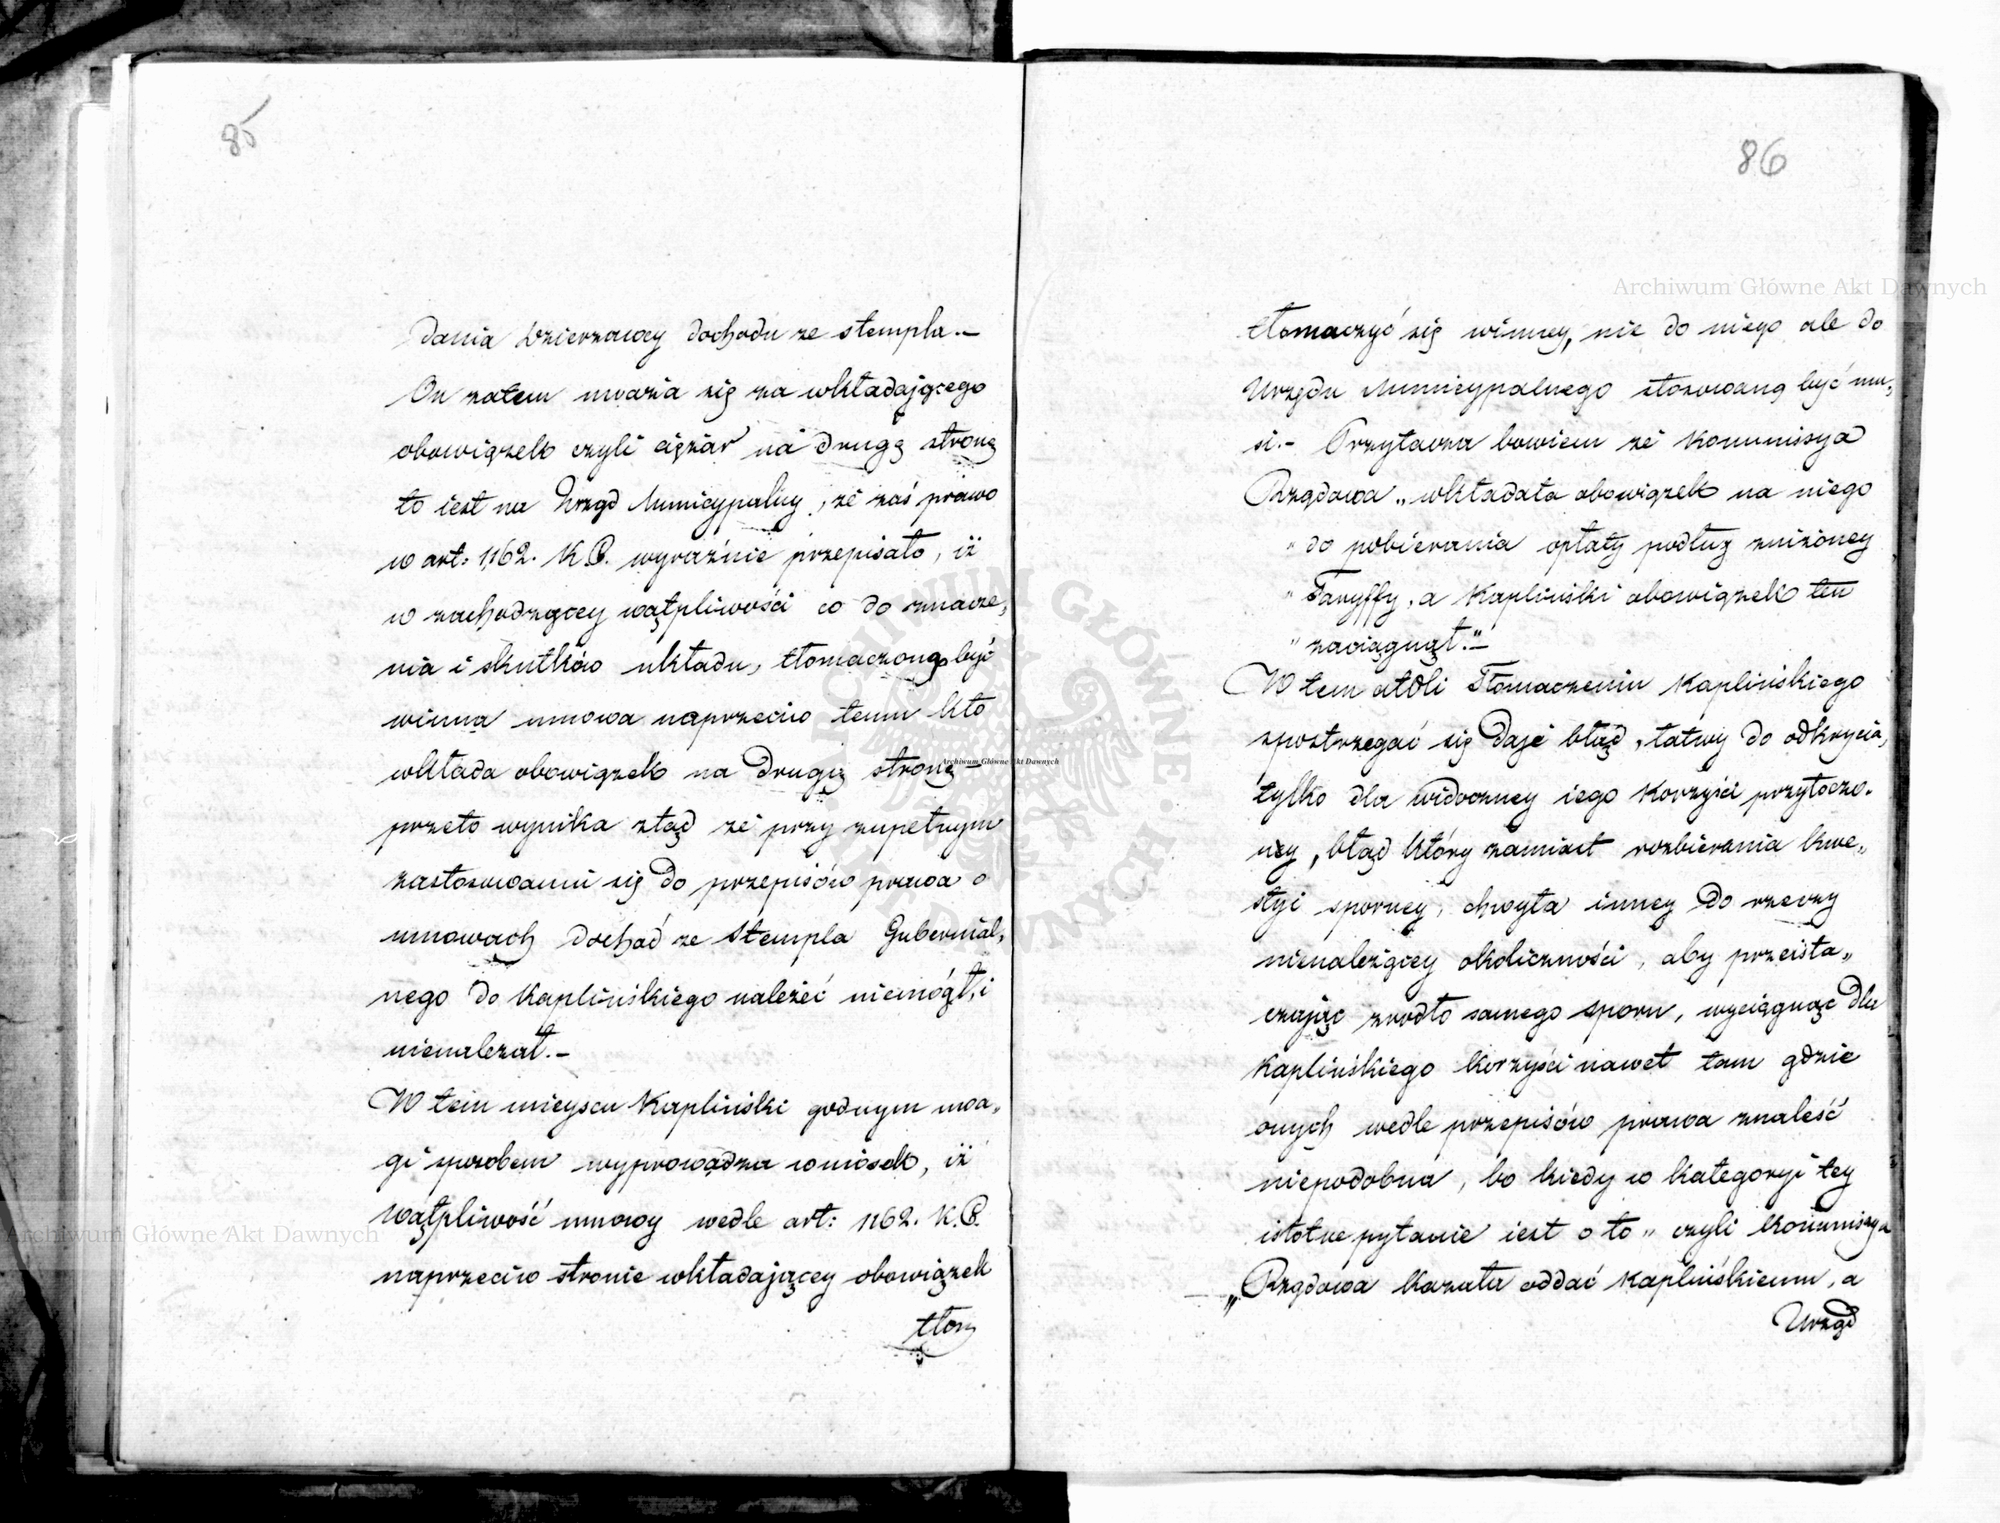 85
dania Dzierzawcy dochodu ze stempla.-
On zatem uważa się za wkładaiącego
obowiązek czyli ciężar na drugą stronę
to iest na Urząd Municypalny, że zaś prawo
w art: 1162. K.C. wyraźnie przepisało, iż
w zachodzącey wątpliwości co do znacze,
nia i skutków układu, tłomaczoną być
winna umowa naprzeciw temu kto
wkłada obowiązek na drugią stronę -
przeto wynika ztąd że przy zupełnym
zastosowaniu się do przepisów prawa o
umowach dochód ze Stempla Gubernial,
nego do Kaplińskiego należeć niemógł, i
nienalezał.-
W tem mieyscu Kapliński godnym uwa,
gi sposobem wyprowadza wniosek, iż
Wątpliwość umowy wedle art: 1162. K.C.
naprzeciw stronie wkładającey obowiązek
tłom
86
tłomaczyć się winney, nie do niego ale do
Urzędu Municypalnego stosowaną być mu,
si.- Przytacza bowiem że Kommissya
Rządowa „wkładała obowiązek na niego
" do pobierania opłaty podług zniżoney
" Taryffy, a Kapliński obowiązek ten
" zaciągnął."-
W tem atoli Tłomaczeniu Kaplińskiego
spostrzegać się daje błąd, łatwy do odkrycia,
tylko dla widoczney iego Korzyści przytoczo-
ny, błąd który zamiast rozbierania kwe„
styi sporney, chwyta inney do rzeczy
nienależącey okoliczności, aby przeista„
czając zrodło samego sporu, wyciągnąc dla
Kaplińskiego korzyści nawet tam gdzie
onych wedle przepisów prawa znaleść
niepodobna, bo kiedy w kategoryi tey
istotne pytanie iest o to „ czyli Kommissya
„Rządowa kazała oddać Kaplińskiemu, a
Urząd
Archiwum Główne Akt Dawnych
Archiwum Główne Akt Dawnych
Archiwum Główne Akt Dawnych
ARCHIWUM GŁÓWNE AKT DAWNYCH